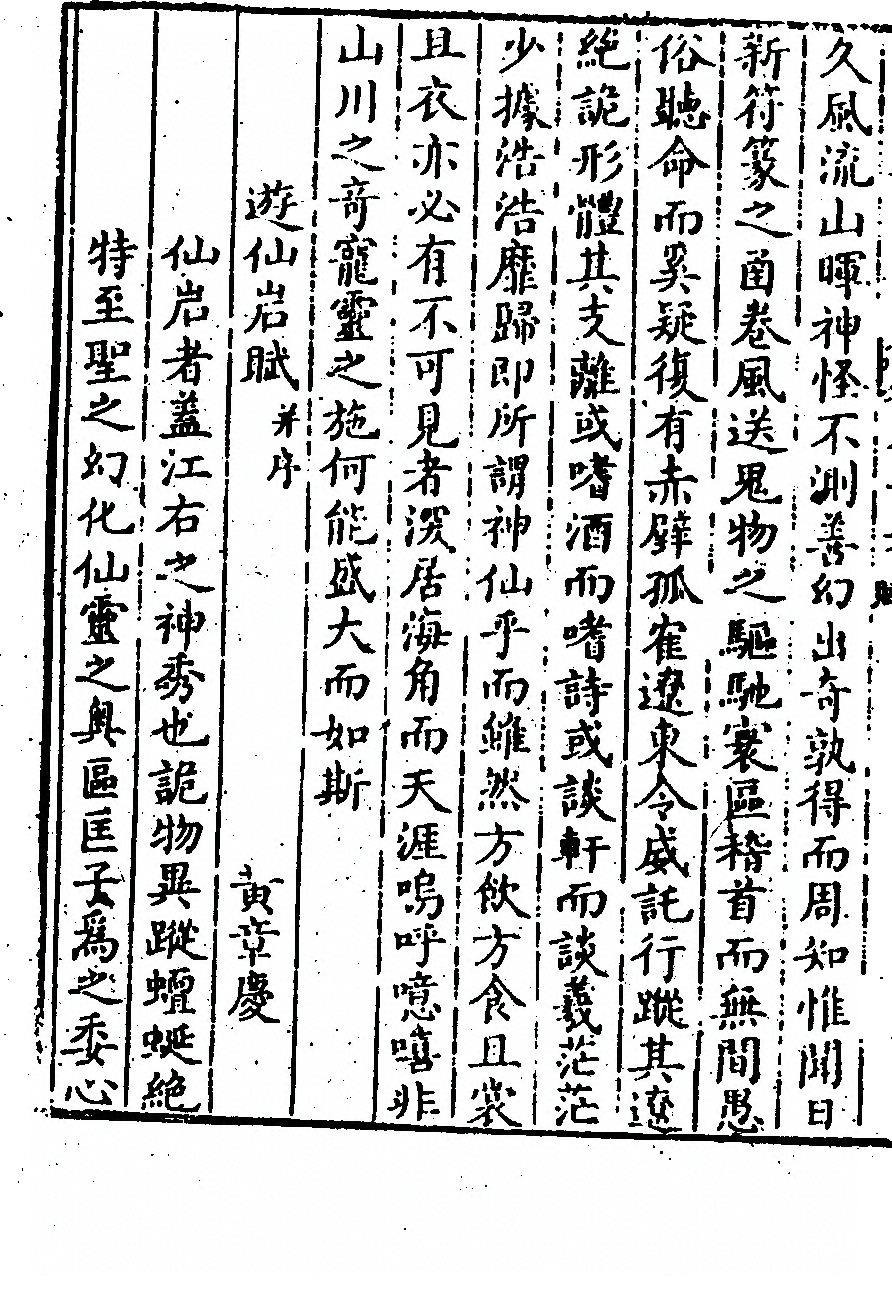 久風流山暉神怪不測善幻出奇孰得而周知惟聞日
新符篆之菌卷風送鬼物之驅馳寰區稽首而無間愚
俗聽命而奚疑復有赤壁孤寉遼東令威託行蹤其遼
絕詭形體其支離或嗜酒而嗜詩或談軒而談羲茫茫
少據浩浩靡歸即所謂神仙乎而雖然方飲方食且裳
且衣亦必有不可見者深居海角而天涯嗚呼噫嘻非
山川之竒寵靈之施何能盛大而如斯
遊仙岩賦 并序 黃章慶
仙岩者蓋江右之神秀也詭物異蹤蟺蜒絕
特至聖之幻化仙靈之奧區匡子爲之委心